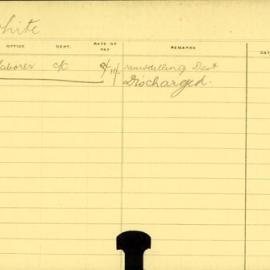 White
OFFICE DEPT. RATE OF PAY REMARKS DAT
Laborer c/c remodelling Dept
Discharged.